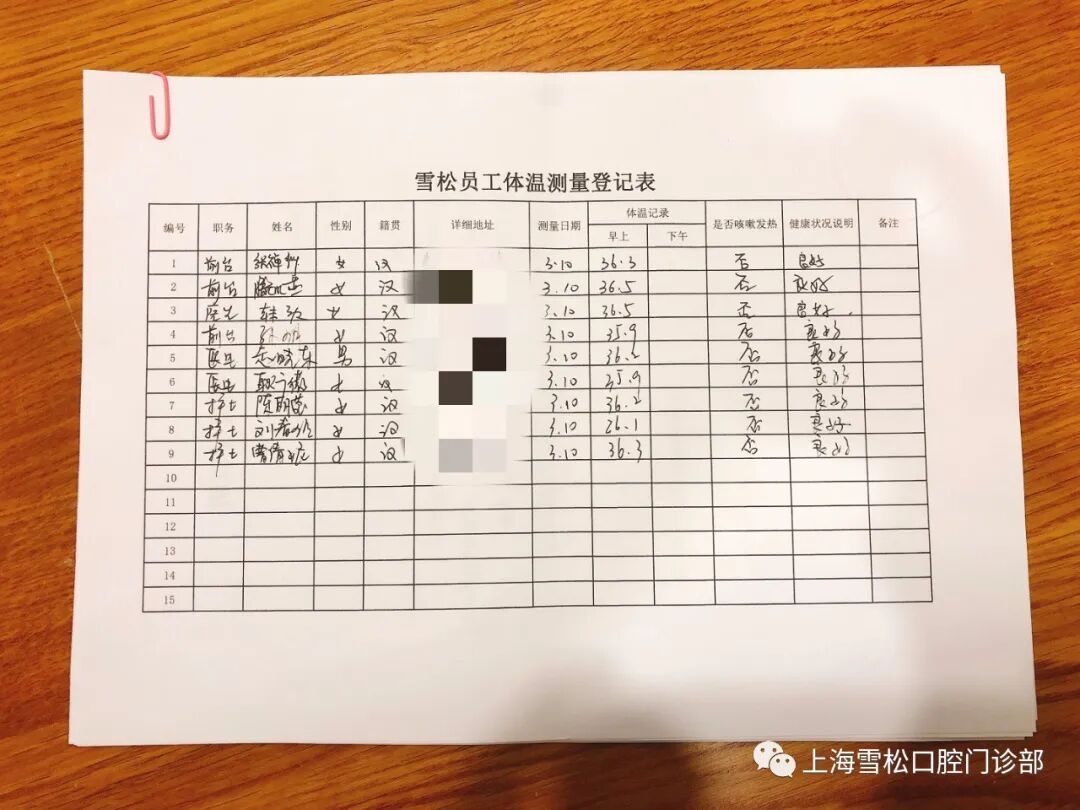 雪松员工体温测量登记表
编号 职务 姓名 性别 籍贯 详细地址 测量日期 体温记录 是否咳嗽发热 健康状况说明 备注
早上 下午
1 前台 女 汉 3.10 36.3 否 良好
2 前台 女 汉 3.10 36.5 否 良好
3 女 汉 3.10 36.5 否 良好
4 前台 女 汉 3.10 35.9 否 良好
5 医生 男 汉 3.10 36.2 否 良好
6 医生 女 汉 3.10 35.9 否 良好
7 护士 女 汉 3.10 36.2 否 良好
8 护士 女 汉 3.10 否 良好
9 护士 女 汉 3.10 36.3 否 良好
10
11
12
13
14
15
上海雪松口腔门诊部